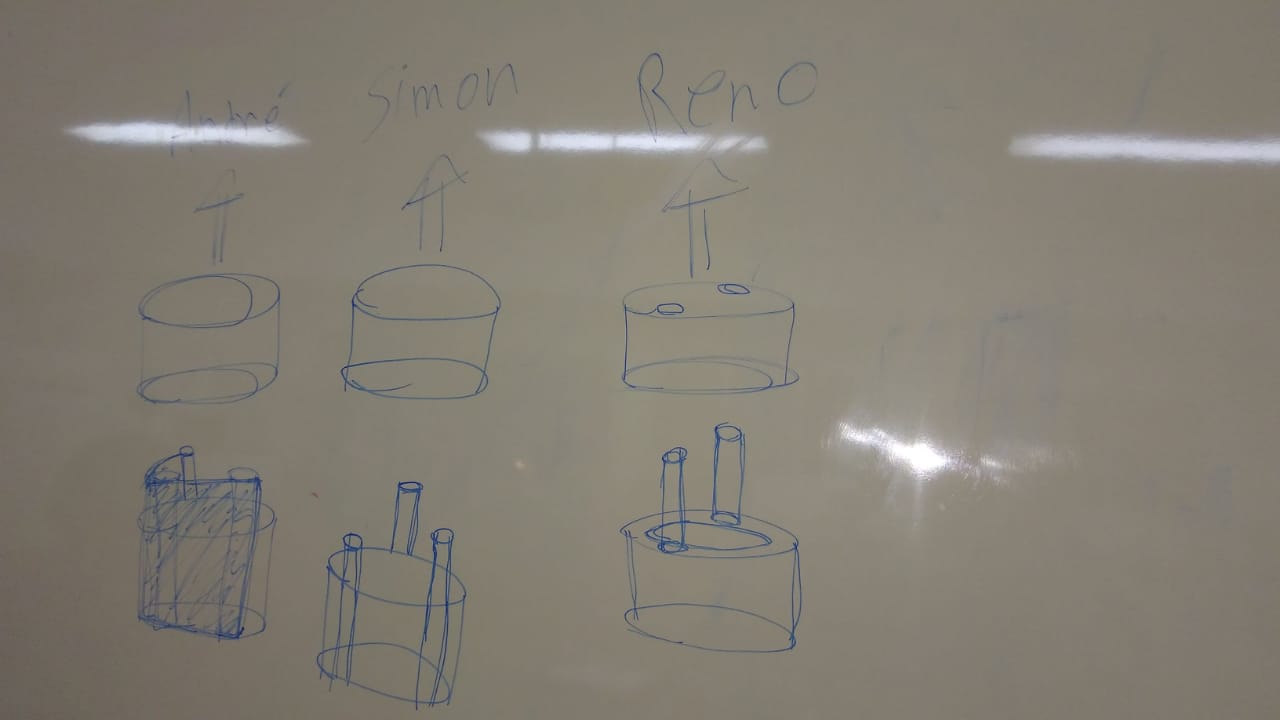 André Simon Reno